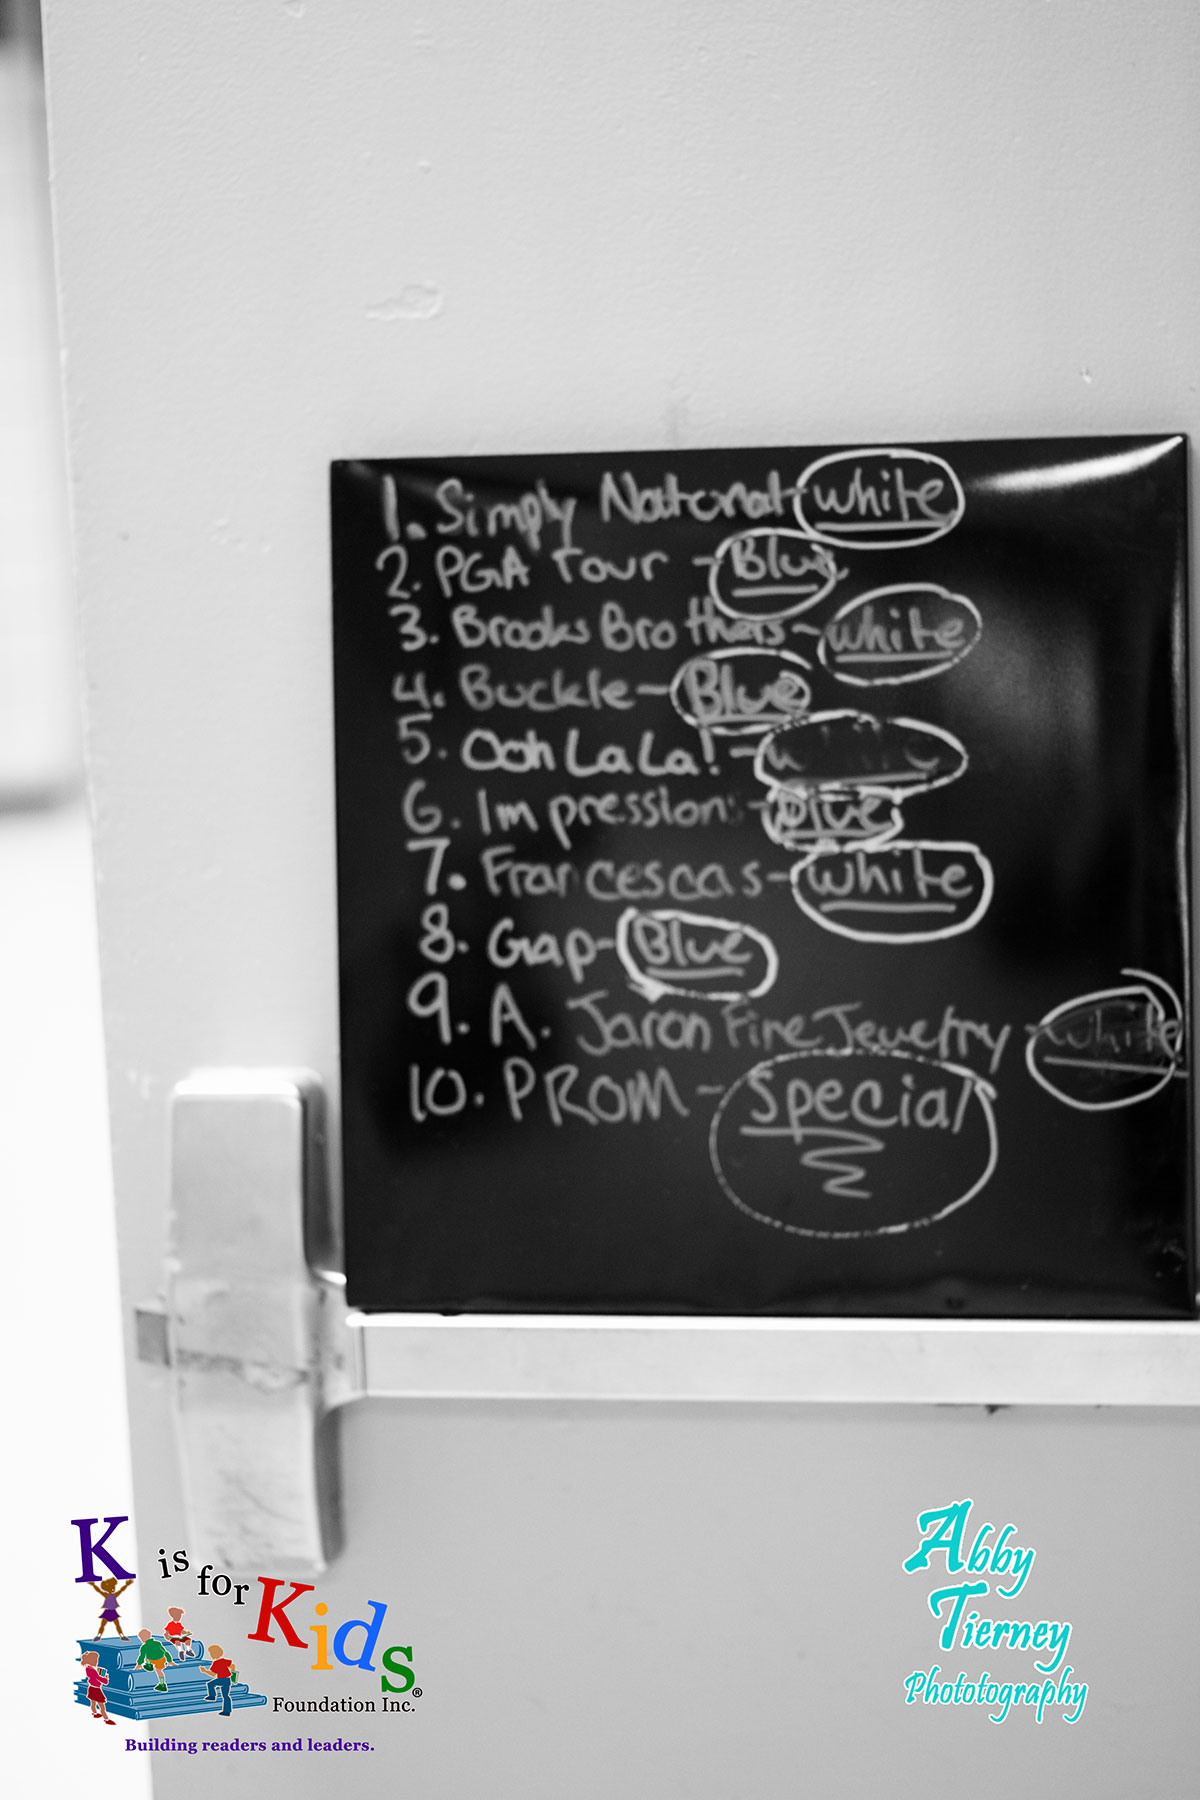 1. Simply Natural - white
2. PGA Tour - Blue
3. Brooks Brothers - white
4. Buckle - Blue
5. Ooh La La! - white
6. Impressions - blue
7. Francescas - white
8. Gap - Blue
9. A. Jaron Fine Jewelry - white
10. PROM - Special
K is for Kids
Foundation Inc.®
Building readers and leaders.
Abby
Tierney
Phototography